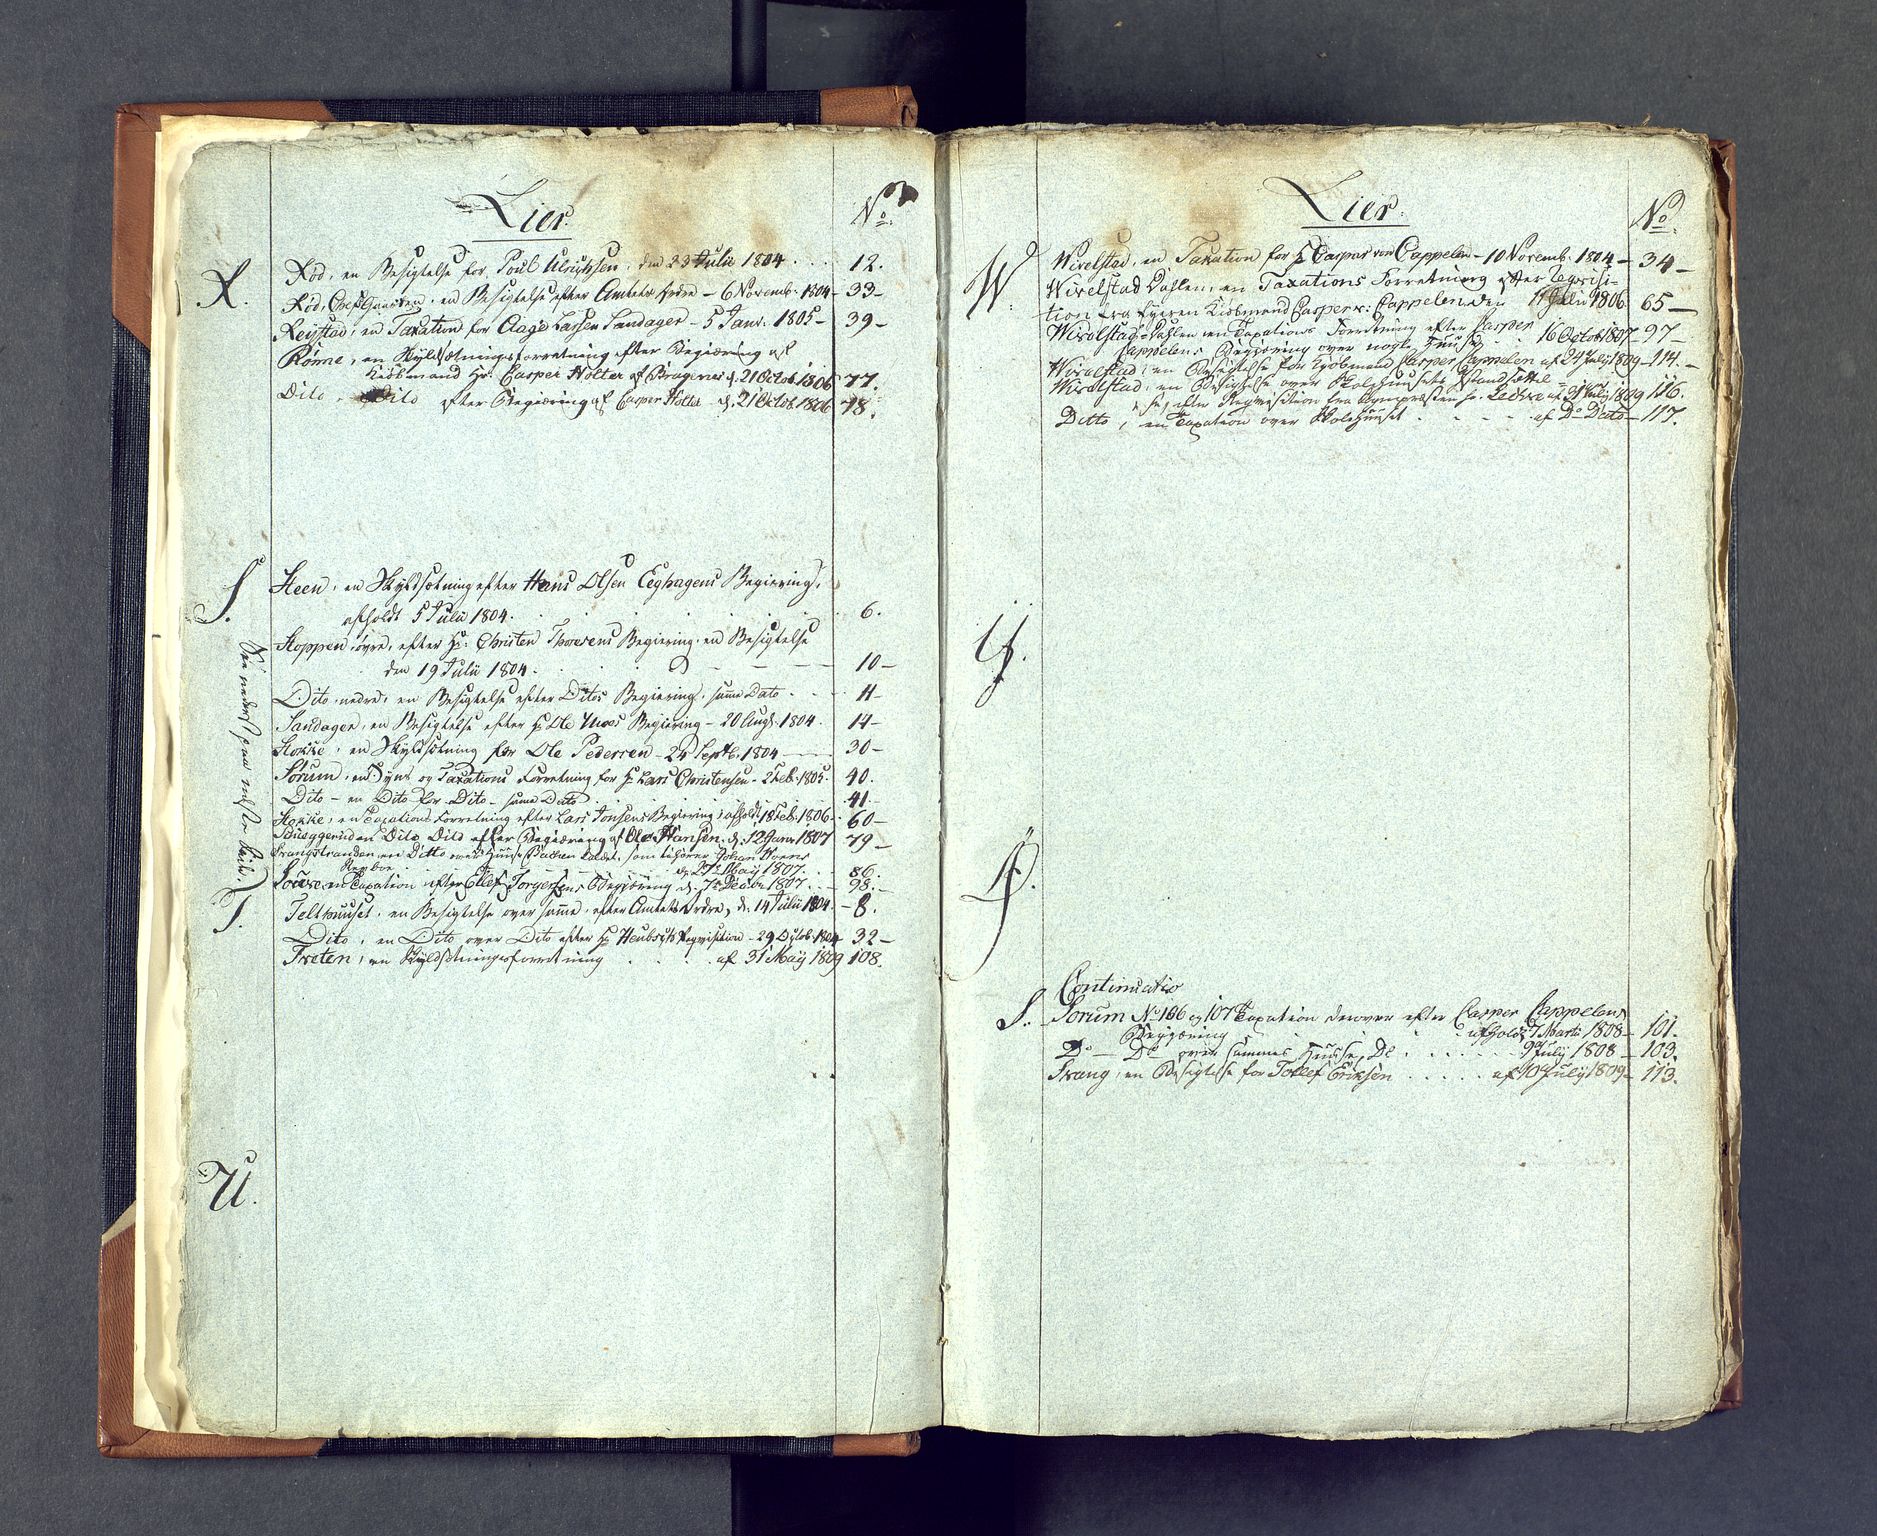 Lier.
No:
R.
Röd, en Besigtelse for Poul Ulrichsen, den 23 Julii 1804 . . . 12.
Röd, en Besigtelse efter Amtets Ordre – 6 Novemb: 1804 – 33 –
Reistad, en Taxation for Aage Larsen Landager – 5 Janr: 1805 – 39 –
Rönne, en Skyldsætningsforretning efter Begiæring af
Kiöbmand Hr: Casper Holter af Bragenes d. 21 Octob. 1806 77.
Dito, Dito efter Begiæring af Casper Holter d. 21 Octob. 1806 78.
S.
Steen, en Skyldsætning efter Hans Olsen Eeghagens Begiering,
afholdt 5 Julii 1804. 6.
Stoppen, övre, efter Hr: Christen Thoresens Begiering, en Besigtelse
den 19 Julii 1804. 10 –
Dito, nedre, en Besigtelse efter Ditos Begiering, samme Dato . . 11 –
Sandager, en Besigtelse efter Hr Ole Moes Begiering – 20 Aug. 1804. 14 –
Stokke, en Skyldsætning for Ole Pedersen – 24 Septb. 1804 – 30 –
Sörum, en Syns og Taxations Forretning for Hr Lars Christensen – 2 Feb. 1805. 40.
Dito – en Dito for Dito – samme Dato . . 41. –
Stokke, en Taxations Forretning efter Lars Jonsens Begiering, afholdt 18 Feb. 1806 – 60 –
Dito Dito efter Begiæring af Ole Hansen. d. 12 Janr 1807 79 –
Svangstranden, en Ditto over Huuse Bakken kaldet, som tilhører Johan
d. 27de May 1807. . . 86.
en Taxation efter Ellef Torgersens Begiæring d. 7de Decbr 1807 . . 98. –
See nederst paa næste Side.
T.
Telthuuset, en Besigtelse over samme, efter Amtets Ordre, d. 14 Julii 1804. – 8.
Dito, en Dito over Dito efter Hr Requisition – 29 Octob. 1804 32 –
Treten, en Skyldsætningsforretning . . . . af 31 May 1809 108.
U.
Lier.
No.
W.
Wivelstad, en Taxation for Hr Caspar von Cappelen – 10 Novemb. 1804 – 34 –
Wivelstad Dahlen, en Taxations Forretning efter Reqvisi-
tion fra Herren Kiöbmand Casper v: Cappelen den 11 Julii 1806. 65 –
Wivelstad-Dahlen en Taxations Forretning efter Casper
Cappelens Begiæring over nogle Huuse 16 Octob 1807 – 97 –
Wivelstad, en Besigtelse for Kjöbmand Casper Cappelen af 24 July 1809 – 114. –
Wivelstad, en Besigtelse over Skolehuusets Istandsættel-
se, efter Reqvisition fra Sognepræsten Hr. July 1809 116.
Ditto, en Taxation over Skolehuuset . . . . af Do Dato – 117.
Continuatio
S.
Sorum No 106 og 107 Taxation derover efter Casper Cappelens
Begiæring afholdt 7 Marti 1808 – 101.
Do – Do over sammes Huuse, Do . . . . . . 9de July 1808 – 103.
Svang, en Besigtelse for Tollef Eriksen . . . . . af 10de July 1809 – 113.